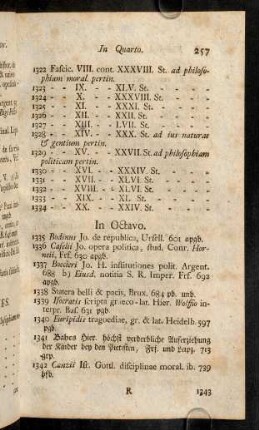 In Quarto. 257
1322 Fascic. VIII. cont. XXXVIII. St. ad philoso-
phiam moral. pertin.
1323 - - IX. - - XLV. St. - -
1324 - - X. - - XXXVIII. St. - -
1325 - - XI. - - XXXI. St. - -
1326 - - XII. - - XXII. St. - -
1327 - - XIII. - - LVII. St. - -
1328 - - XIV. - - XXX. St. ad ius naturae
& gentium pertin.
1329 - - XV. - - XXVII. St. ad philosophiam
politicam pertin.
1330 - - XVI. - - XXXIV. St. - -
1331 - - XVII. - - XLVI. St. - -
1332 - - XVIII. - - XLVI. St. - -
1333 - - XIX. - - XI. St. - -
1334 - - XX. - - XXIV. St. - -
In Octavo.
1335 Bodinus Jo. de republica, Ursell. 601 apgb.
1336 Caselii Jo. opera politica, stud. Conr. Hor-
neii, Frf. 630 apgb.
1337 Boecleri Jo. H. institutiones polit. Argent.
688 b) Eiusd. notitia S. R. Imper. Frf. 692
apgb.
1338 Statera belli & pacis, Brux. 684 pb. unb.
1339 Isocratis scripta graeco-lat. Hier. Wolfio in-
terpr. Bas. 631 pgb.
1340 Euripidis tragoediae, gr. & lat. Heidelb. 597
pgb.
1341 Hier. höchst verderbliche Auferziehung
der Kinder bey den Pietisten, Frf. und Leipz. 713
1342 Canzii Isr. Gottl. disciplinae moral. ib. 739
R 1343